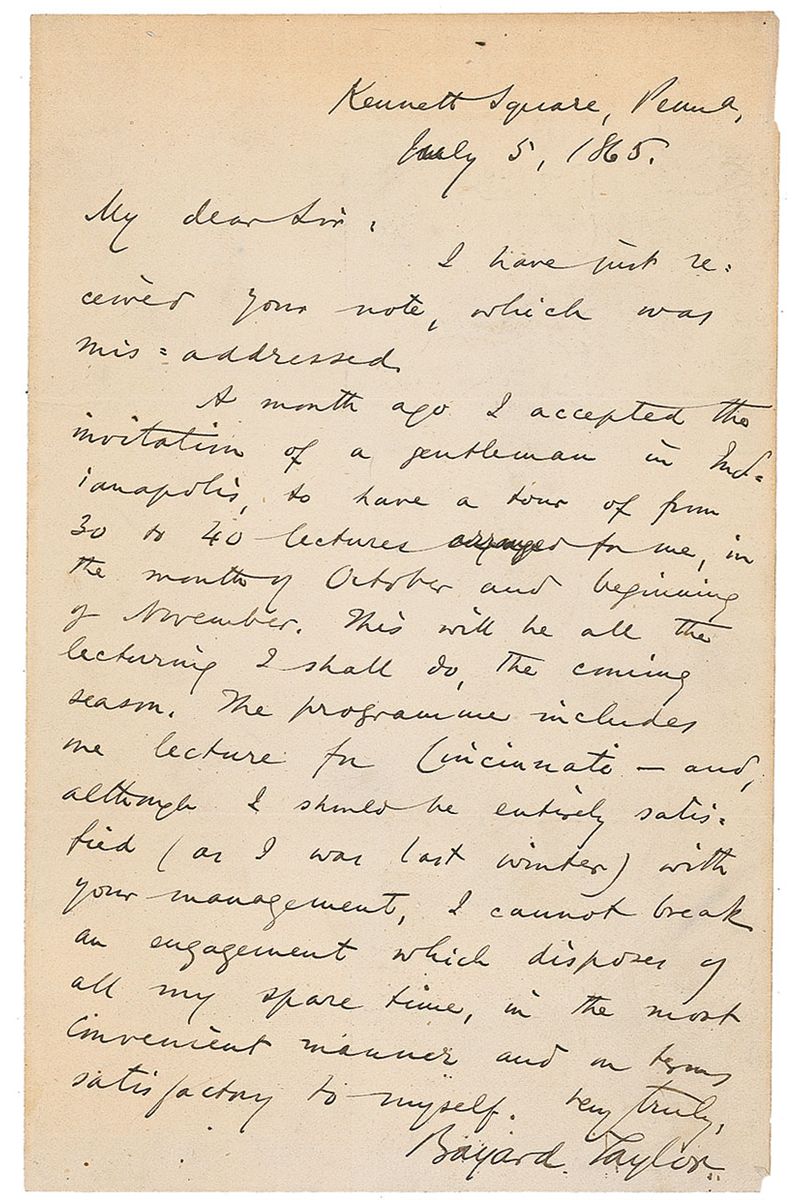 Kennett Square, Penn'a,
July 5, 1865.
My dear Sir:
I have just re=
ceived your note, which was
mis=addressed.
A month ago I accepted the
invitation of a gentleman in Ind=
ianapolis, to have a tour of from
30 to 40 lectures arranged for me, in
the month of October and beginning
of November. This will be all the
lecturing I shall do, the coming
season. The programme includes
one lecture for Cincinnati — and,
although I should be entirely satis=
fied (as I was last winter) with
your management, I cannot break
an engagement which disposes of
all my spare time, in the most
convenient manner and on terms
satisfactory to myself. Very truly,
Bayard Taylor.